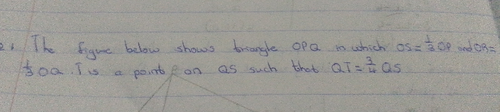 2. The figure below shows triangle OPQ in which OS = 1/3 OP and OR =
1/3 OQ. T is a point on QS such that QT = 3/4 QS